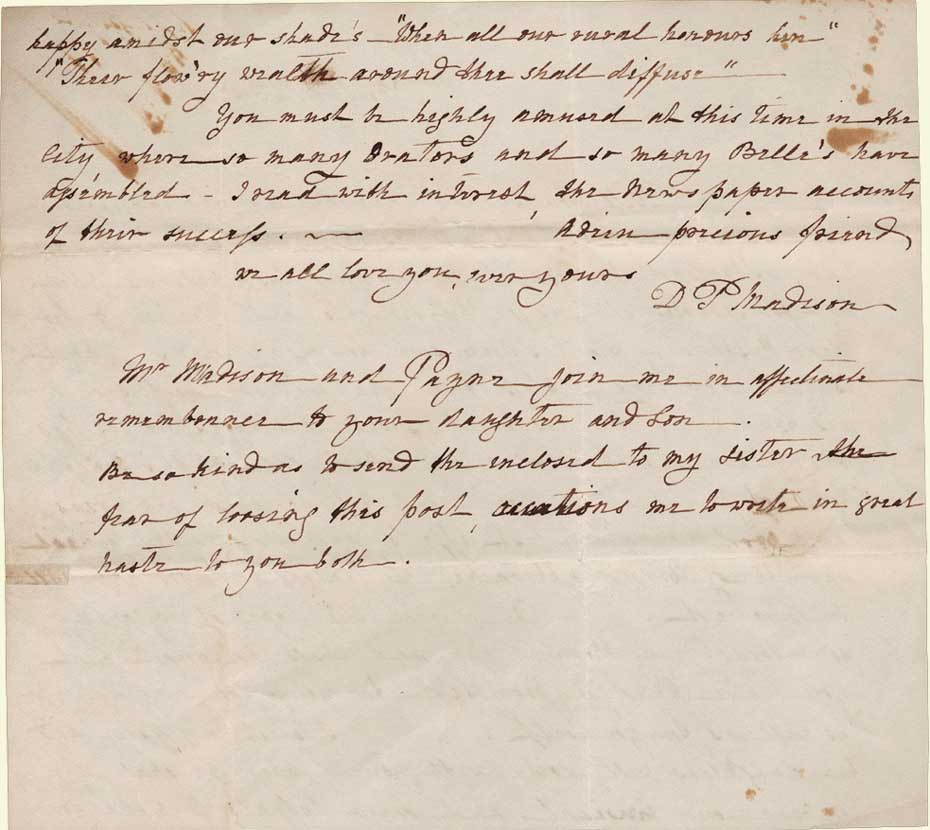 happy amidst our shade's "When all our rural honours here"
"Their flow'ry wealth around thee shall diffuse"
You must be highly amused at this time in the
City where so many Orators and so many Belle's have
assembled - I read with interest, the News paper accounts
of their success. Adieu precious friend,
we all love you, ever yours
D P Madison
Mr Madison and Payne join me in affectinate
remembrance to your daughter and Son.
Be so kind as to send the inclosed to my sister the
fear of loosing this post, me to write in great
haste to you both.